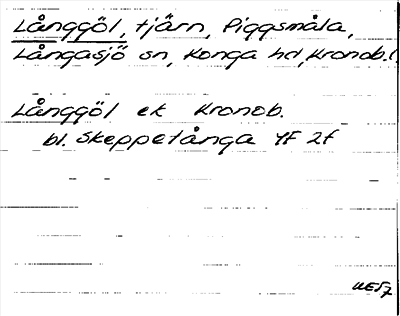 Långgöl, tjärn, Piggsmåla,
Långasjö sn, Konga hd, Kronob.l.
Långgöl ek Kronob.
bl. Skeppetånga 4F 2f